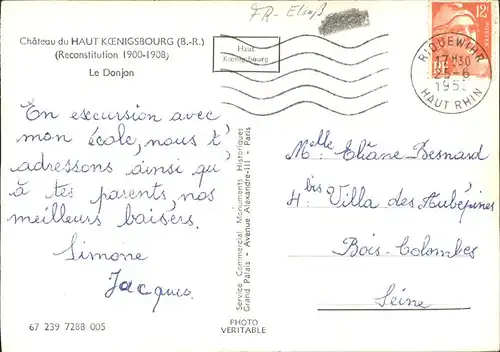 FR-Elsaß
Château du HAUT KŒNIGSBOURG (B.-R.)
(Reconstitution 1900-1908)
Le Donjon
Haut
Kœnigsbourg
12F
RF
RIQUEWIHR
17H30
25-6
HAUT RHIN
En excursion avec
mon école, nous t'
adressons ainsi qu'
à tes parents, nos
meilleurs baisers.
Simone
Jacques
67 239 7288 005
Service Commercial Monuments Historiques
Grand Palais - Avenue Alexandre-III - Paris
PHOTO
VERITABLE
Melle Eliane Besnard
4 bis Villa des Aubépines
Bois-Colombes
Seine